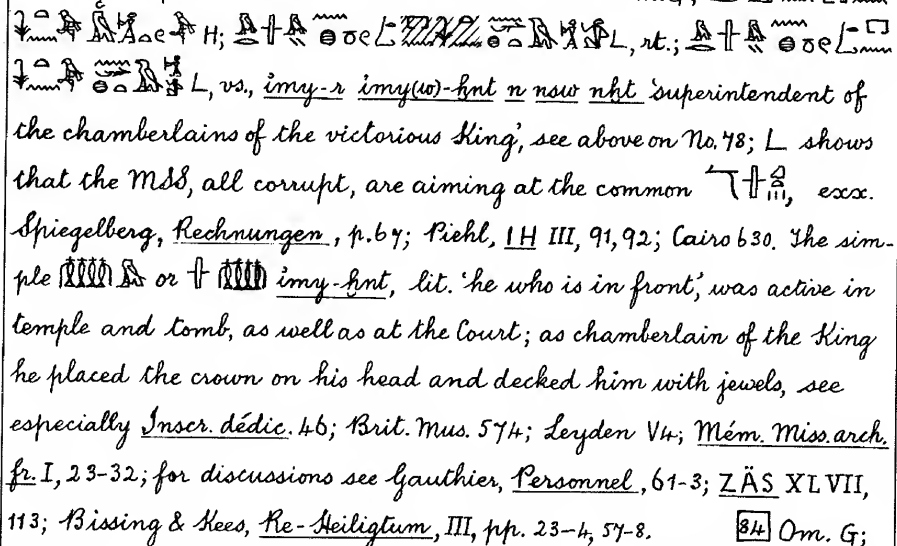 H; L, rt.;
L, vs., ỉmy-r ỉmy(w)-ḫnt n nsw nḫt 'superintendent of
the chamberlains of the victorious King', see above on No. 78; L shows
that the MSS, all corrupt, are aiming at the common , exx.
Spiegelberg, Rechnungen, p.67; Piehl, IH III, 91,92; Cairo 630. The sim-
ple or ỉmy-ḫnt, lit. 'he who is in front', was active in
temple and tomb, as well as at the Court; as chamberlain of the King
he placed the crown on his head and decked him with jewels, see
especially Inscr. dédic. 46; Brit. Mus. 574; Leyden V4; Mém. Miss. arch.
fr. I, 23-32; for discussions see Gauthier, Personnel, 61-3; ZÄS XLVII,
113; Bissing & Kees, Re-Heiligtum, III, pp. 23-4, 57-8. 84 Om. G;